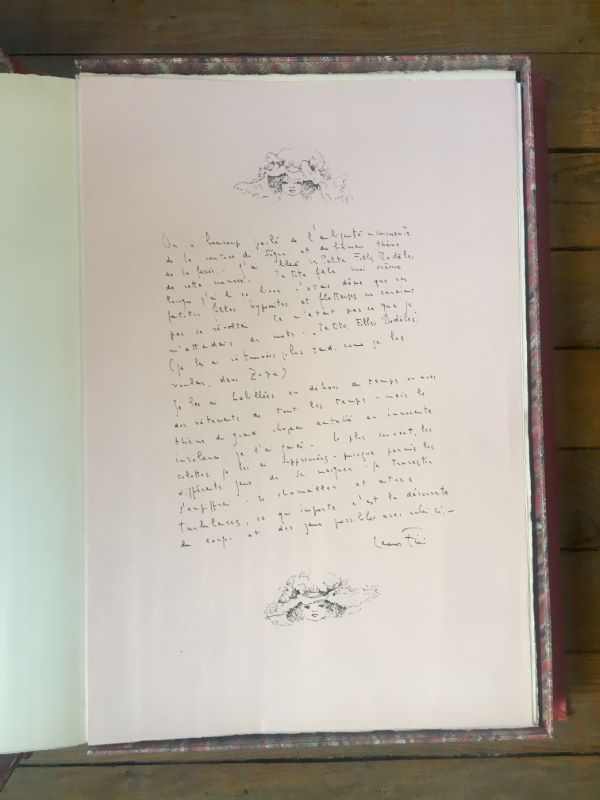 On a beaucoup parlé de l'ambiguité inconsciente
de la comtesse de Ségur et du thème
de la J'ai les Petites Filles Modèles
de cette Petite fille moi même
lorsque j'ai lu ce livre j'étais que ces
petites filles et ne savaient
pas se révolter. Ce n'était pas ce que je
m'attendais des mots "Petites Filles Modèles".
(je les ai retrouvées plus tard, comme je les
voulais, dans Zaza)
Je les ai habillées en dehors du temps ou avec
des vêtements de tout les temps - mais le
thème du grand chapeau en innocente
insolence, je l'ai gardé - le plus souvent, les
culottes je les ai supprimées, puisque parmi les
différents jeux de se masquer, se travestir
s'empiffrer, se chamailler et autres
turbulences, ce qui importe c'est la découverte
du corps et des jeux possibles avec celui ci -
Leonor Fini